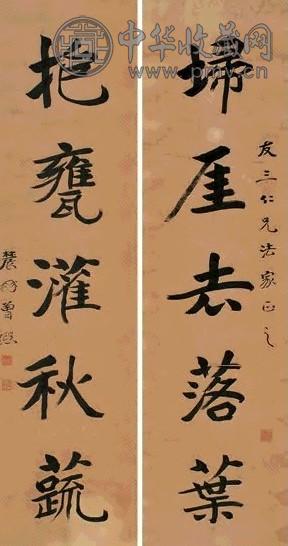 中华收藏网
www.pmv.cn
友三仁兄法家正之
埽厓去落葉
抱甕灌秋蔬
農髯曾熙